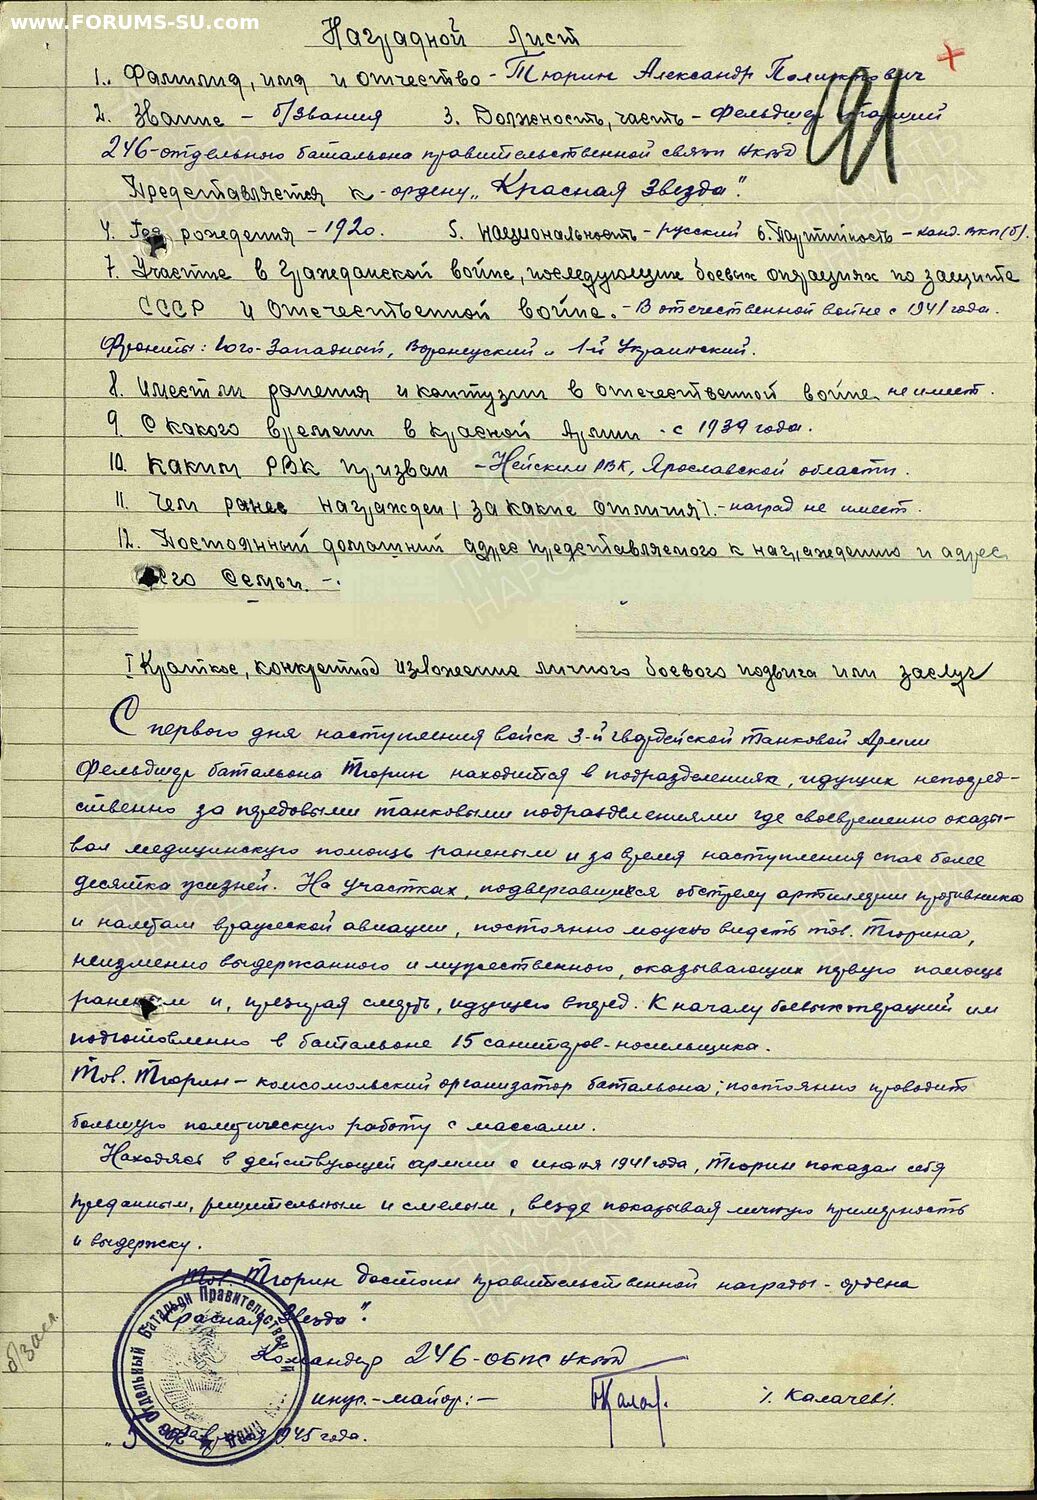 www.FORUMS-SU.com
Наградной лист
1. Фамилия, имя и отчество - Тюрин Александр
2. Звание - б/звания 3. Должность, часть - Фельдшер старший
246-отдельного батальона правительственной связи НКВД
Представляется к - ордену „Красная Звезда".
4. Год рождения - 1920. 5. Национальность - русский 6. Партийность - канд. ВКП(б).
7. Участие в гражданской войне, последующих боевых операциях по защите
СССР и отечественной войне. - В отечественной войне с 1941 года.
Фронты: Юго-Западный, Воронежский и 1-й Украинский.
8. Имеет ли ранения и контузии в отечественной войне не имеет.
9. С какого времени в Красной Армии - с 1939 года.
10. Каким РВК призван - Нейским РВК, Ярославской области.
11. Чем ранее награжден /за какие отличия/. - наград не имеет.
12. Постоянный домашний адрес представляемого к награждению и адрес
его семьи. -
I Краткое, конкретное изложение личного боевого подвига или заслуг
С первого дня наступления войск 3-й гвардейской танковой Армии
фельдшер батальона Тюрин находится в подразделениях, идущих непосред-
ственно за передовыми танковыми подразделениями где своевременно оказы-
вал медицинскую помощь раненым и за время наступления спас более
десятка жизней. На участках, подвергавшихся обстрелу артиллерии противника
и налетам вражеской авиации, постоянно можно видеть тов. Тюрина,
неизменно выдержанного и мужественного, оказывающих первую помощь
раненым и, презирая смерть, идущего вперед. К началу боевых операций им
подготовленно в батальоне 15 санитаров-носильщика.
Тов. Тюрин - комсомольский организатор батальона; постоянно проводит
большую политическую работу с массами.
Находясь в действующей армии с июня 1941 года, Тюрин показал себя
преданным, решительным и смелым, везде показывая личную примерность
и выдержку.
Тов. Тюрин достоин правительственной награды - ордена
„Красная Звезда".
Командир 246-ОБПС НКВД
инж.-майор: - /Калачев/.
„5" февраля 1945 года.
Отдельный Батальон Правительствен